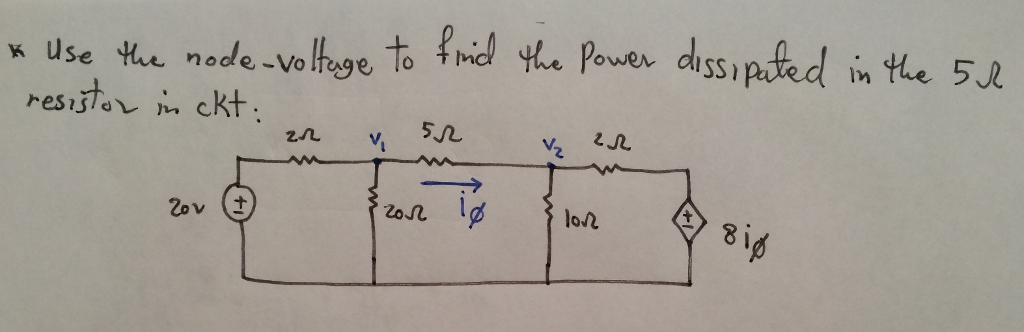 * Use the node-voltage to find the Power dissipated in the 5Ω
resistor in ckt:
2Ω V₁ 5Ω V₂ 2Ω
20v + 20Ω iø 10Ω + 8iø